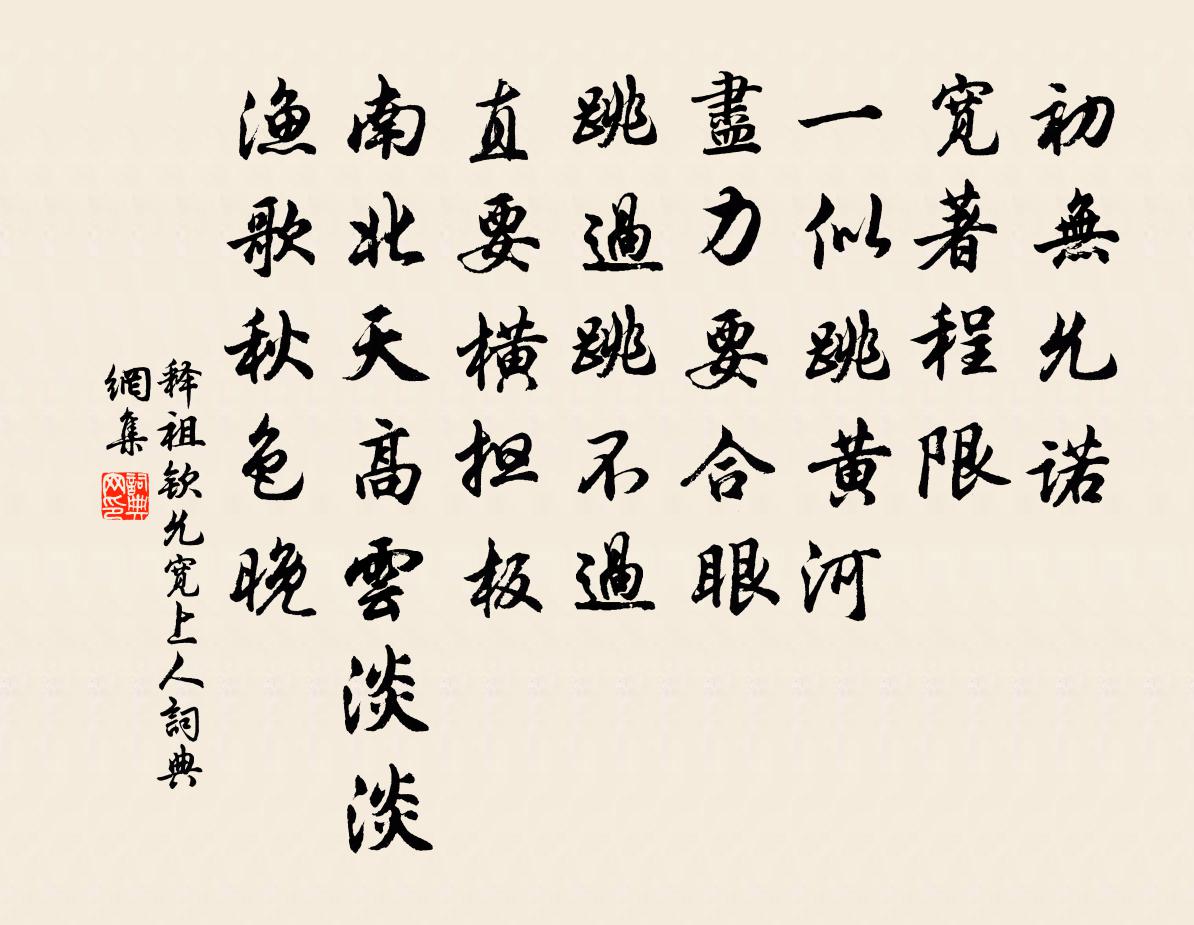 初無允諾
寬著程限
一似跳黄河
盡力要合眼
跳過跳不過
直要橫担板
南北天高雲淡淡
漁歌秋色晚
释祖钦允寬上人詞典
網集
詞典网印